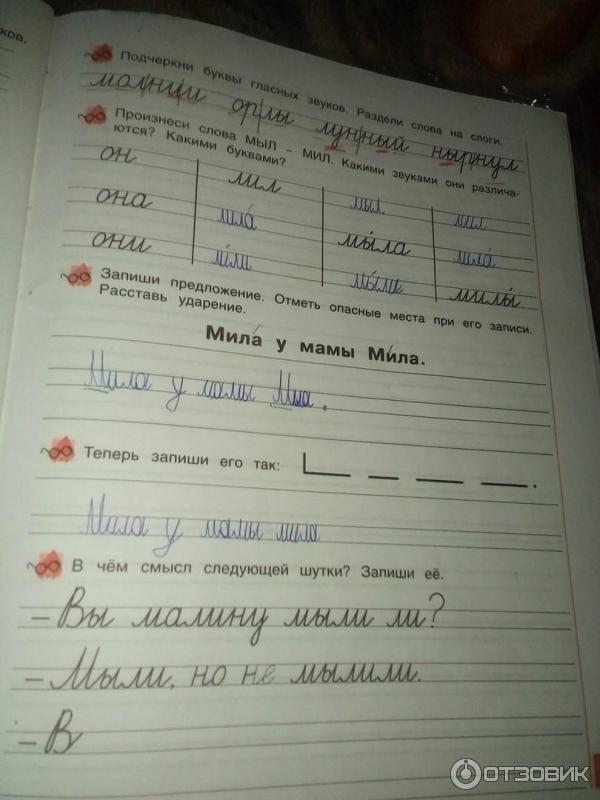 ков.
Подчеркни буквы гласных звуков. Раздели слова на слоги.
молнии орлы лунный нырнул
Произнеси слова МЫЛ – МИЛ. Какими звуками они различа-
ются? Какими буквами?
он мил мыл мил
она мила́ мы́ла мила́
они ми́ли мы́ли милы́
Запиши предложение. Отметь опасные места при его записи.
Расставь ударение.
Мила́ у мамы Ми́ла.
Мила у мамы
Теперь запиши его так:
Мила у мамы мила
В чём смысл следующей шутки? Запиши её.
– Вы малину мыли ли?
– Мыли, но не мылили.
– В
ОТЗОВИК